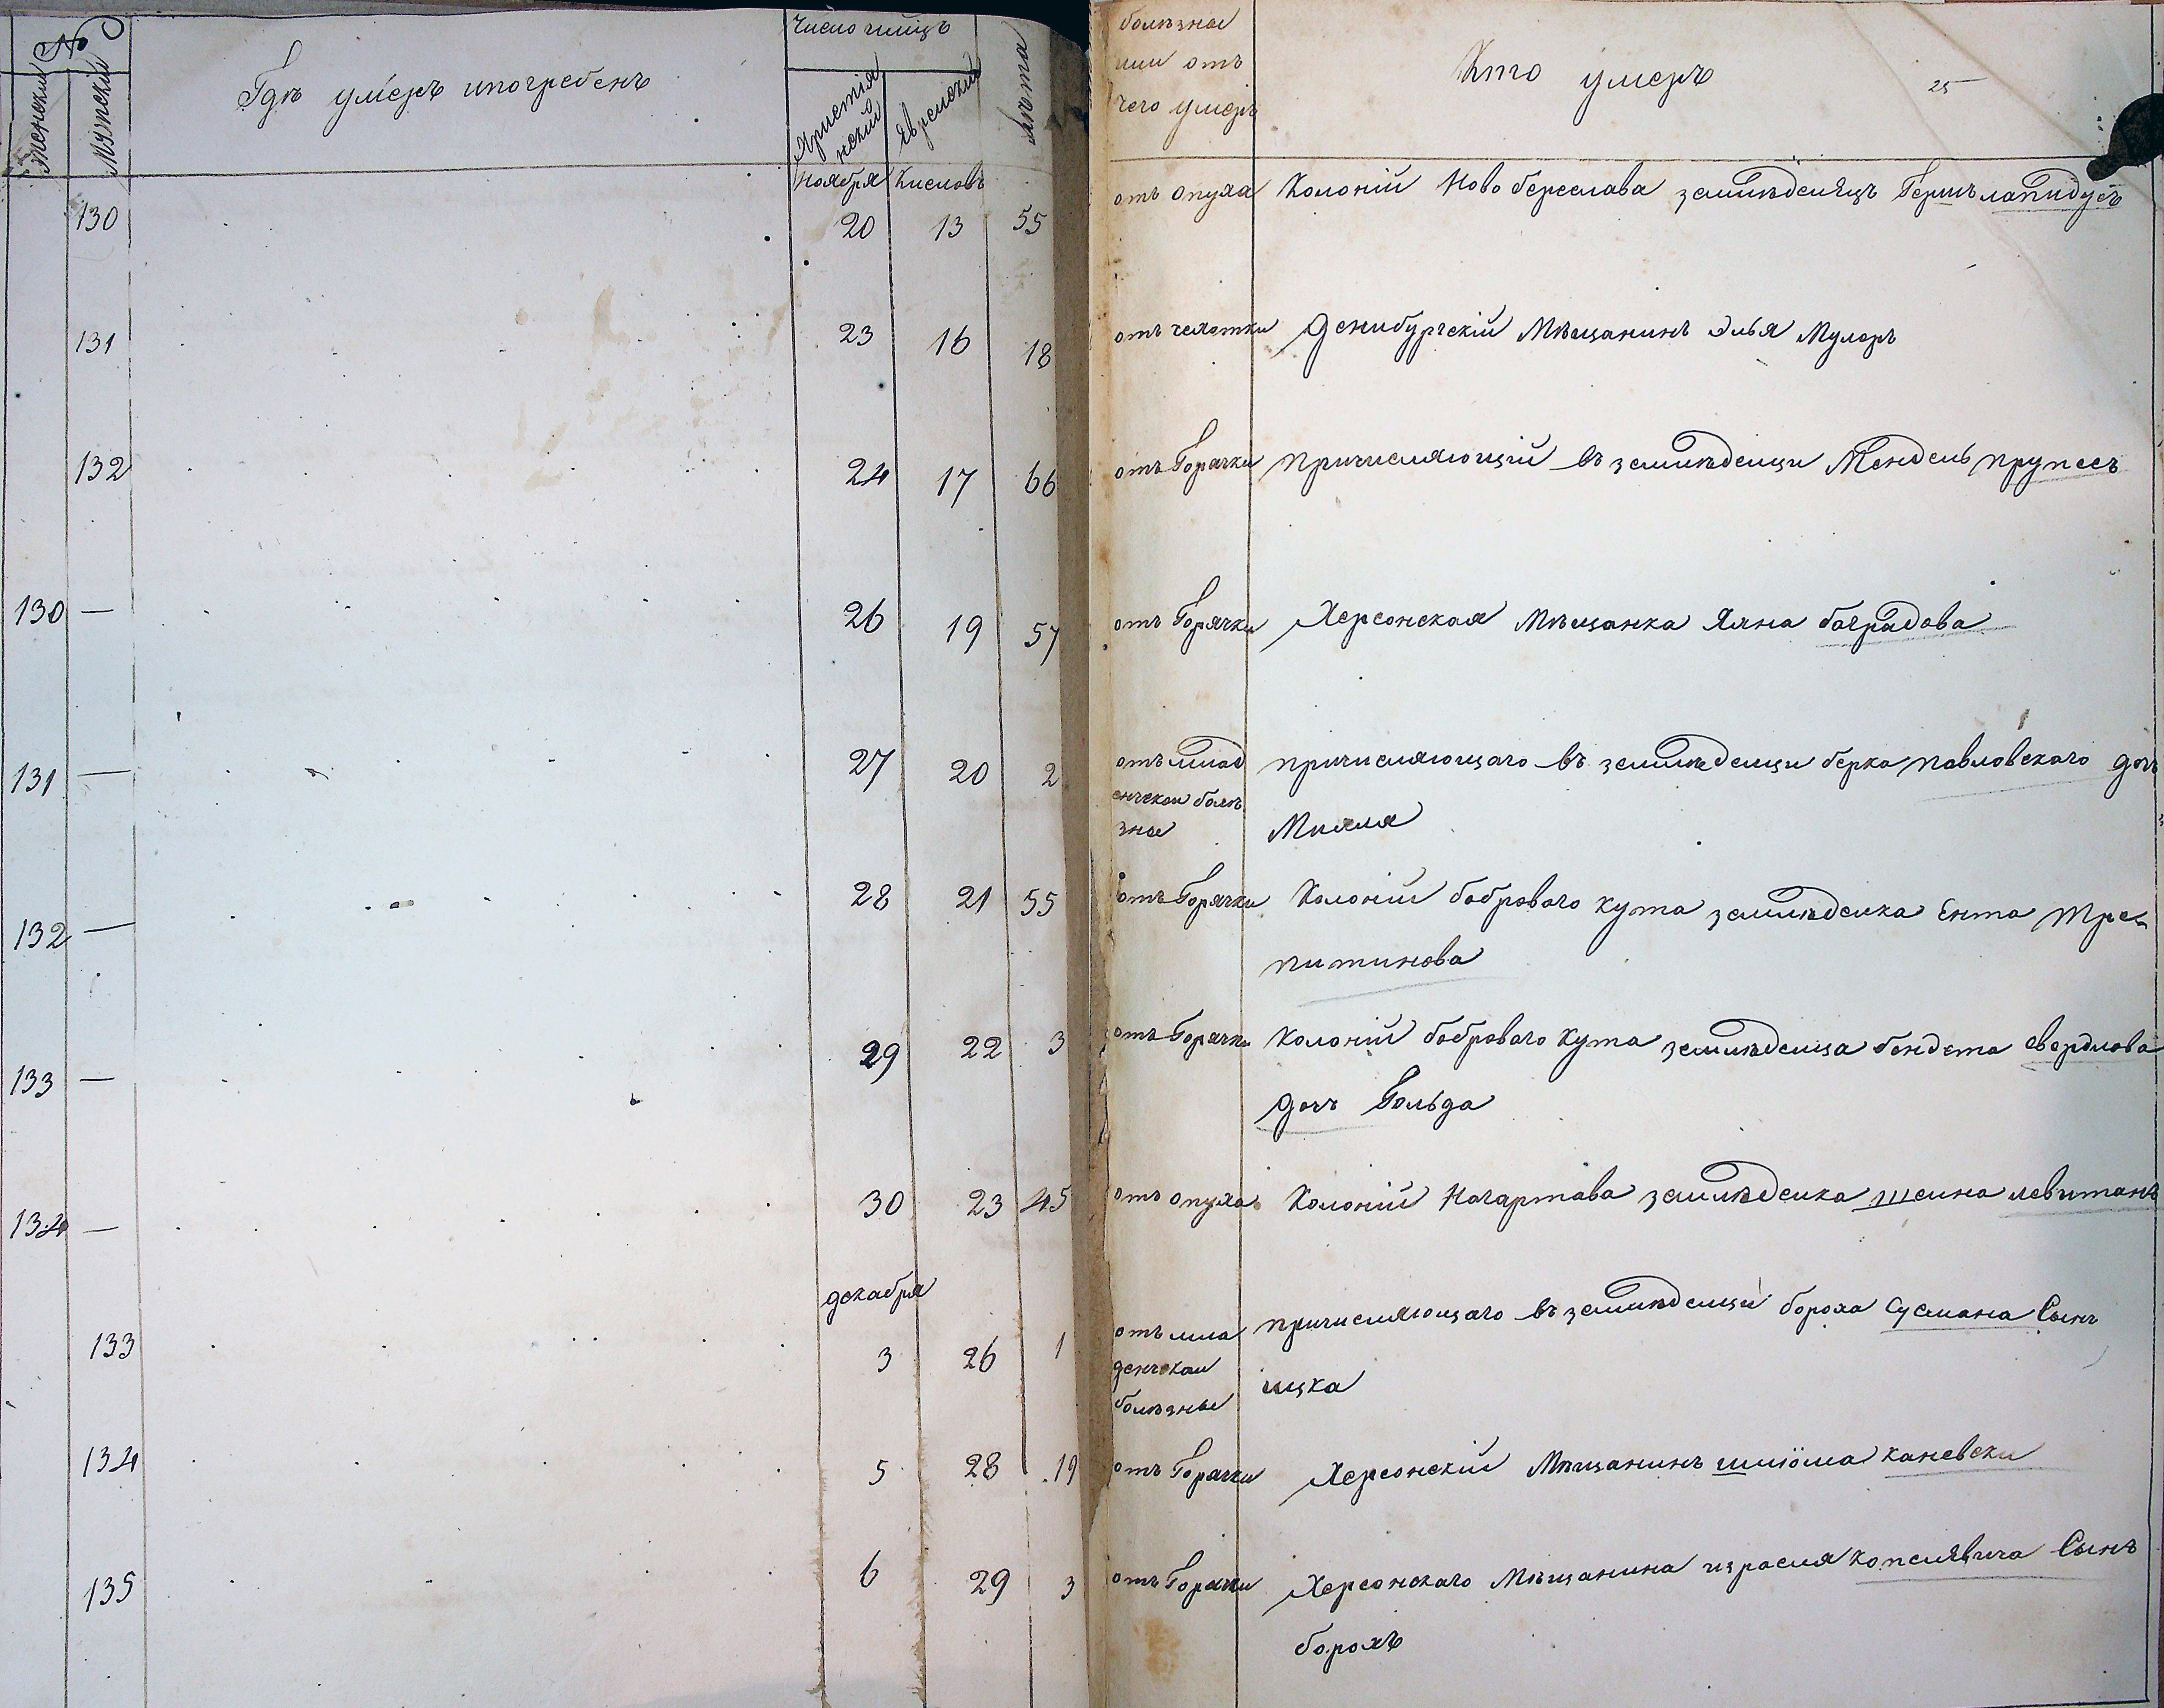 №
женски
мужскіи
Гдѣ умеръ ипогребенъ
Число имисцъ
Христіянскій
Еврейскій
Лѣта
болѣзнеи
или отъ
чего умеръ
Кто умеръ
25
Ноября Кислова
130 20 13 55 отъ опуха Колоніи Ново береслава землѣделецъ Гершъ лапидусъ
131 23 16 18 отъ чехотки Денибургскій Мѣщанинъ Элья Мулеръ
132 24 17 66 отъ Горячки причисляющій въ землѣделци Мендель прупесъ
130 — 26 19 57 отъ Горячки Херсонская Мѣщанка Хяна баградова
131 — 27 20 2 отъ млад причисляющаго въ землѣделци берка павловскаго дочъ
енческои болѣ
знеи Миля
132 — 28 21 55 отъ Горячки Колоніи боброваго кута землѣделка Ента Тре
питинова
133 — 29 22 3 отъ Горячки Колоніи боброваго кута землѣделца бендета свердлова
дочъ Гольда
134 — 30 23 45 отъ опуха Колоніи Нагартава землѣделка шеина левитанъ
декабря
133 3 26 1 отъ мла причисляющаго въ землѣделци бороха сусмана Сынъ
денческои
болѣзные ицка
134 5 28 19 отъ Горячки Херсонскій Мѣщанинъ шліома каневски
135 6 29 3 отъ Горячки Херсонскаго Мѣщанина израеля копелявича Сынъ
борохъ